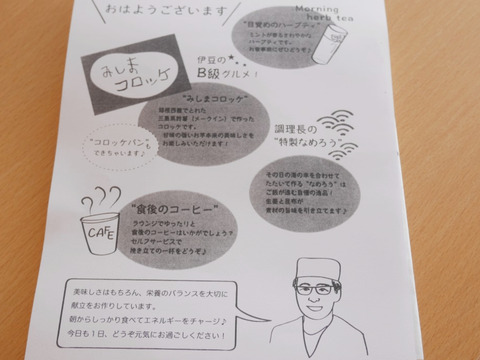 おはようございます
Morning
herb tea
"目覚めのハーブティ"
ミントが香るさわやかな
ハーブティです。
お食事前にぜひどうぞ♪
みしま
コロッケ
伊豆の
B級グルメ!
"みしまコロッケ"
箱根西麓でとれた
三島馬鈴薯(メークイン)で作った
コロッケです。
甘味の強いお芋本来の美味しさを
お楽しみいただけます!
"コロッケパン"も
できちゃいます♪
調理長の
"特製なめろう"
その日の海の幸を合わせて
たたいて作る"なめろう"は
ご飯が進む自慢の逸品!
生姜と昆布が
食材の旨味を引き立てます♪
CAFE
"食後のコーヒー"
ラウンジでゆったりと
食後のコーヒーはいかがでしょう?
セルフサービスで
挽き立ての一杯をどうぞ♪
美味しさはもちろん、栄養のバランスを大切に
献立をお作りしています。
朝からしっかり食べてエネルギーをチャージ♪
今日も1日、どうぞ元気にお過ごしください!